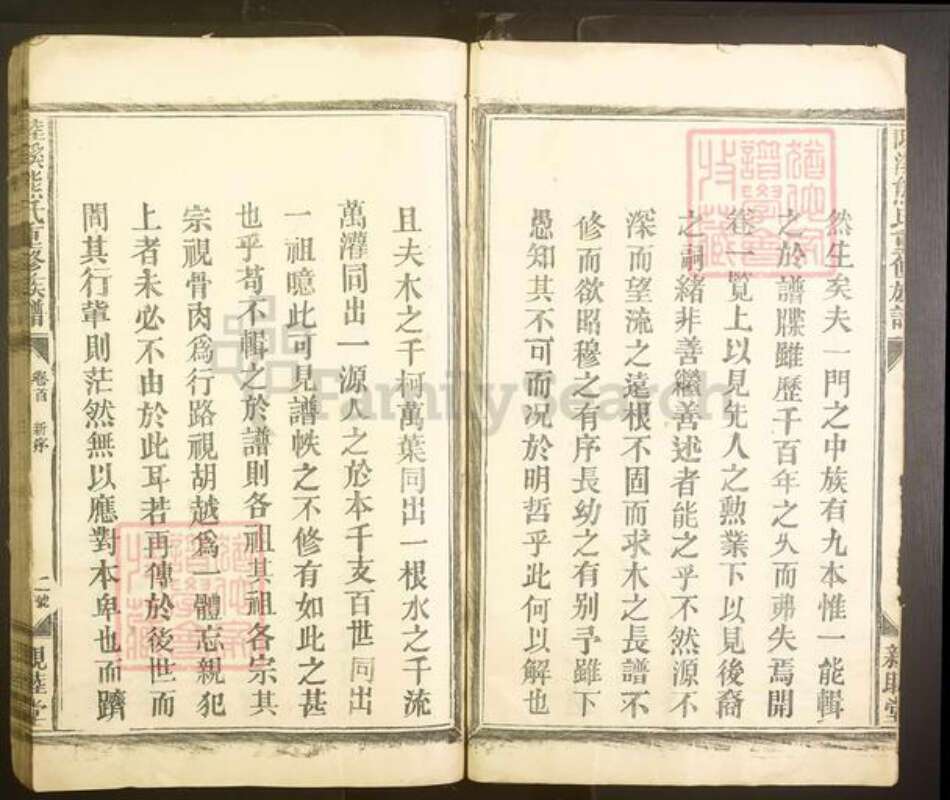 然生矣夫一門之中族有九本惟一能輯
之於譜牒雖歷千百年之久而弗失焉開
卷一覽上以見先人之勲業下以見後裔
之嗣緒非善繼善述者能之乎不然源不
深而望流之遠根不固而求木之長譜不
修而欲昭穆之有序長幼之有别予雖下
愚知其不可而况於明哲乎此何以解也
且夫木之千柯萬葉同出一根水之千流
萬灌同出一源人之於本千支百世同出
一祖噫此可見譜帙之不修有如此之甚
也乎苟不輯之於譜則各祖其祖各宗其
宗視骨肉爲行路視胡越爲一體忘親犯
上者未必不由於此耳若再傳於後世而
間其行輩則茫然無以應對本卑也而躋
陸溪熊氏重修族譜
卷首
新序
二號
親睦堂
FamilySearch